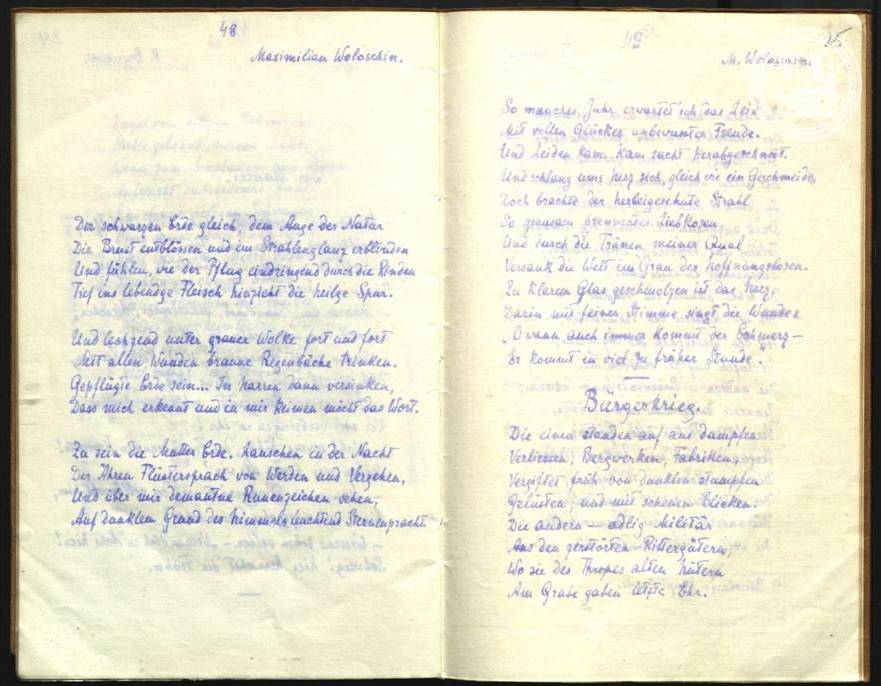 48
Maximilian Woloschin.
Der schwarzen Erde gleich, dem Auge der Natur
Die Brust entblössen und im Strahlenglanz erblinden
Und fühlen, wie der Pflug eindringend durch die Rinden
Tief ins lebendge Fleisch hinzieht die heilge Spur.
Und lechzend unter grauer Wolke fort und fort
Mit allen Wunden braune Regenbäche trinken.
Gepflügte Erde sein... In Harren dann versinken,
Dass mich erkennt und in mir keimen möcht das Wort.
Zu sein die Mutter Erde. Lauschen in der Nacht
Der Ähren Flüstersprach von Werden und Vergehen,
Und über mir demantne Runenzeichen sehen,
Auf dunklem Grund des Himmels leuchtend Sternenpracht
49
25
M. Woloschin.
So manches Jahr erwartet' ich das Leid
Mit vollen Glückes unbewusster Freude.
Und Leiden kam. Kam sacht herabgeschneit.
Und schlang ums Herz sich, gleich wie ein Geschmeide
Doch brachte der herbeigesehnte Strahl
So grausam brennendes Liebkosen
Und durch die Tränen meiner Qual
Versank die Welt im Grau des Hoffnungslosen.
Zu klarem Glas geschmolzen ist das Herz,
Darin mit feiner Stimme singt die Wunde:
"O wann auch immer kommt der Schmerz –
Er kommt in viel zu früher Stunde."
Bürgerkrieg.
Die einen standen auf aus dumpfen
Verliessen, Bergwerken, Fabriken,
Vergiftet früh von dunklen stumpfen
Gelüsten, und mit scheuen Blicken.
Die andern – adlig Militär
Aus den zerstörten Rittergütern,
Wo sie des Thrones alten Hütern
Am Grabe gaben letzte Ehr.